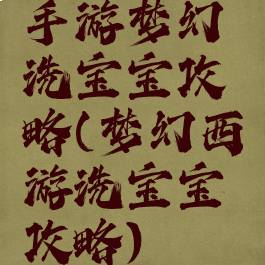 手游梦幻
洗宝宝攻
略(梦幻西
游洗宝宝
攻略)